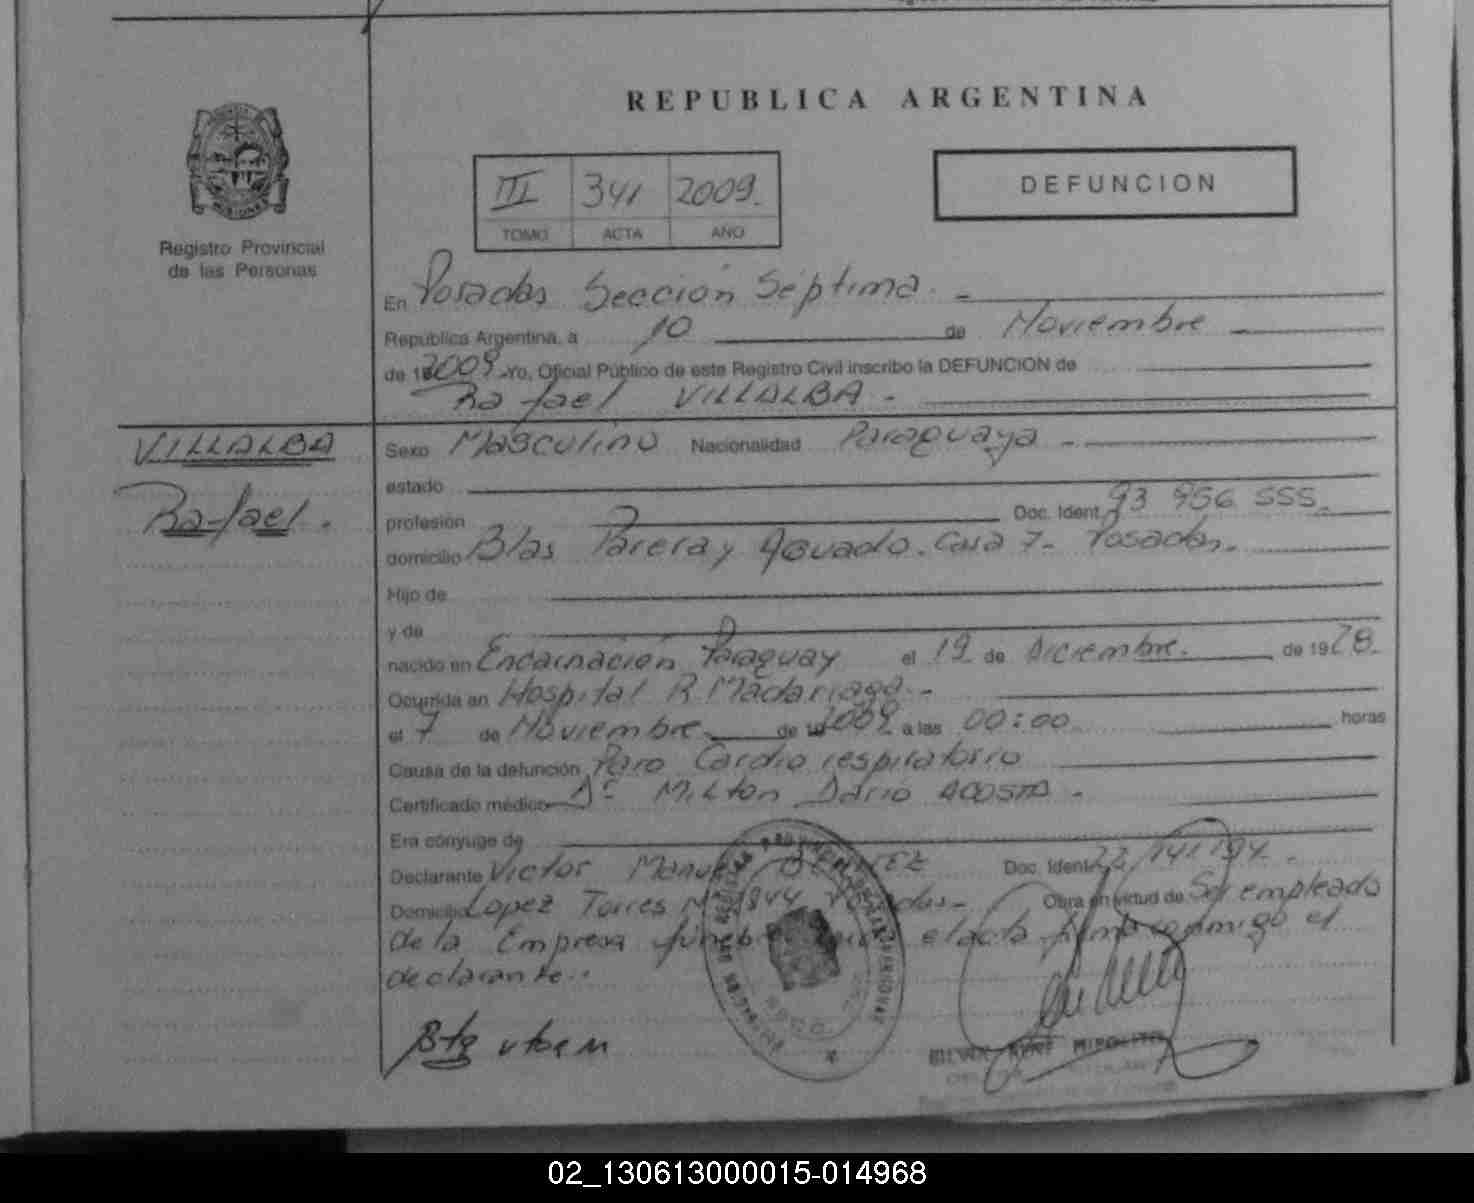 REPUBLICA ARGENTINA
MISIONES
Registro Provincial
de las Personas
III 341 2009.
TOMO ACTA AÑO
DEFUNCION
En Posadas Sección Séptima. -
Republica Argentina, a 10 de Noviembre
de 2009 Yo, Oficial Público de este Registro Civil inscribo la DEFUNCION de
Rafael VILLALBA.
VILLALBA
Rafael.
Sexo Masculino Nacionalidad Paraguaya -
estado
profesión Doc. Ident. 93 956 555.
domicilio Blas Parera y Aguado. Casa 7- Posadas.
Hijo de
y de
nacido en Encarnación Paraguay el 19 de Diciembre. de 1928.
Ocurrida en Hospital R. Madariaga. -
el 7 de Noviembre de 2009 a las 00:00 horas
Causa de la defunción Paro Cardio respiratorio
Certificado médico Dr Milton Dario ACOSTA -
Era cónyuge de
Declarante Victor Manuel Doc. Ident. 22/141194.
Domicilio Lopez Torres Nº 1944 Posadas- Obra en virtud de Ser empleado
de la Empresa el acta firma conmigo el
declarante.
HIPOLITO
02_130613000015-014968